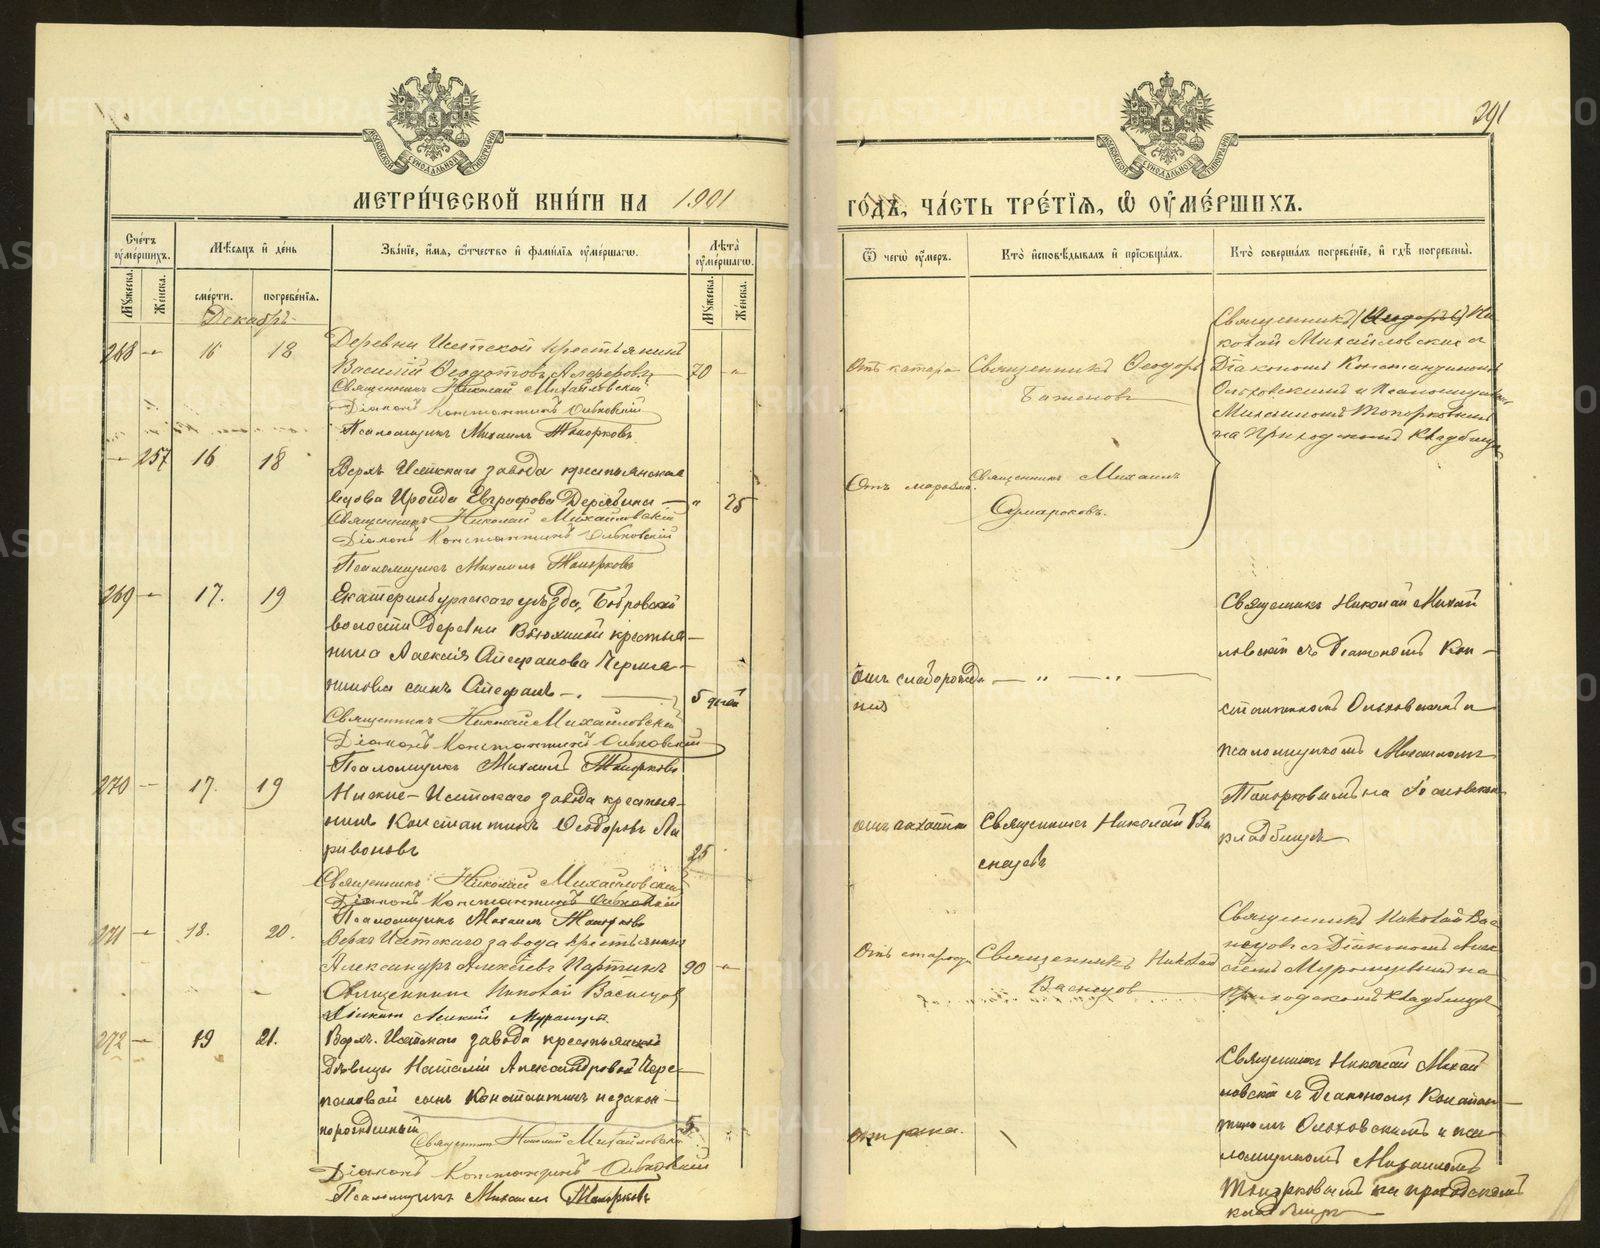 291
МЕТРИ́ЧЕСКОЙ КНИ́ГИ НА 1901
ГО́ДЪ, ЧА́СТЬ ТРЕ́ТІЯ, Ѿ ОУМЕ́РШИХЪ.
Сче́тъ оуме́ршихъ.
Мѣ́сяцъ и де́нь
Зва́ніе, и́мя, о́тчество и фами́лія оуме́ршагѡ.
Лѣ́та оуме́ршагѡ.
Мꙋ́жеска.
Же́нска.
сме́рти.
погребе́нія.
Мꙋ́жеска.
Же́нска.
Ѿ чегѡ̀ оу́меръ.
Кто̀ исповѣ́дывалъ и пріѡбща́лъ.
Кто̀ соверша́лъ погребе́ніе, и гдѣ̀ погребены̀.
Декабрь
268 — 16 18
Деревни Исетской крестьянинъ
Василій Ѳеодотовъ Алферовъ — 70 —
Священникъ Николай Михайловскій
Діаконъ Константинъ Ольховскій
Псаломщикъ Михаилъ Топорковъ
Отъ катара
Священникъ Ѳеодоръ
Баженовъ
Священникъ Ни
колай Михайловскій с
Діакономъ Константиномъ
Ольховскимъ и Псаломщикомъ
Михаиломъ Топорковымъ
на Приходскомъ кладбищѣ
— 257 16 18
Верхъ Исетскаго завода крестьянская
вдова Ироида Евграфова Дерябина — " 75
Священникъ Николай Михайловскій
Діаконъ Константинъ Ольховскій
Псаломщикъ Михаилъ Топорковъ
Отъ маразма.
Священникъ Михаилъ
Сумароковъ.
269 — 17. 19
Екатеринбургскаго уѣзда, Бобровской
волости деревни Вьюхиной крестья—
нина Алексія Стефанова Чермя—
нинова сынъ Стефанъ —. 5 дней
Священникъ Николай Михайловскій
Діаконъ Константинъ Ольховскій
Псаломщикъ Михаилъ Топорковъ
отъ слаборожде
нія
— " — " —
Священникъ Николай Михай
ловскій съ Діакономъ Кон—
стантиномъ Ольховскимъ и
псаломщикомъ Михаиломъ
Топорковымъ на
кладбищѣ
270 — 17. 19
Нижне-Исетскаго завода крестья—
нинъ Константинъ Ѳеодоровъ Ла
ривоновъ 25
Священникъ Николай Михайловскій
Діаконъ Константинъ Ольховскій
Псаломщикъ Михаилъ Топорковъ
отъ чахотки
Священникъ Николай Ва
снецовъ
271 — 18. 20.
Верхъ Исетскаго завода крестьянинъ
Александръ Алексѣевъ Партинъ 90 —
Священникъ Николай Васнецов
Діаконъ Алексій
Отъ старости
Священникъ Николай
Васнецов
Священникъ Николай Вас
нецовъ с Діакономъ Алек
сѣемъ на
Приходскомъ кладбищѣ
272 — 19 21.
Верхъ. Исетскаго завода крестьянской
дѣвицы Наталіи Александровой Чере—
пановой сынъ Константинъ незакон—
норожденный 5
Священникъ Николай Михайловскій
Діаконъ Константинъ Ольховскій
Псаломщикъ Михаилъ Топорковъ
Священникъ Николай Михай
ловскій съ Діакономъ Констан—
тиномъ Ольховскимъ и пса—
ломщикомъ Михаиломъ
Топорковымъ на приходскомъ
кладбищѣ
METRIKI.GASO-URAL.RU